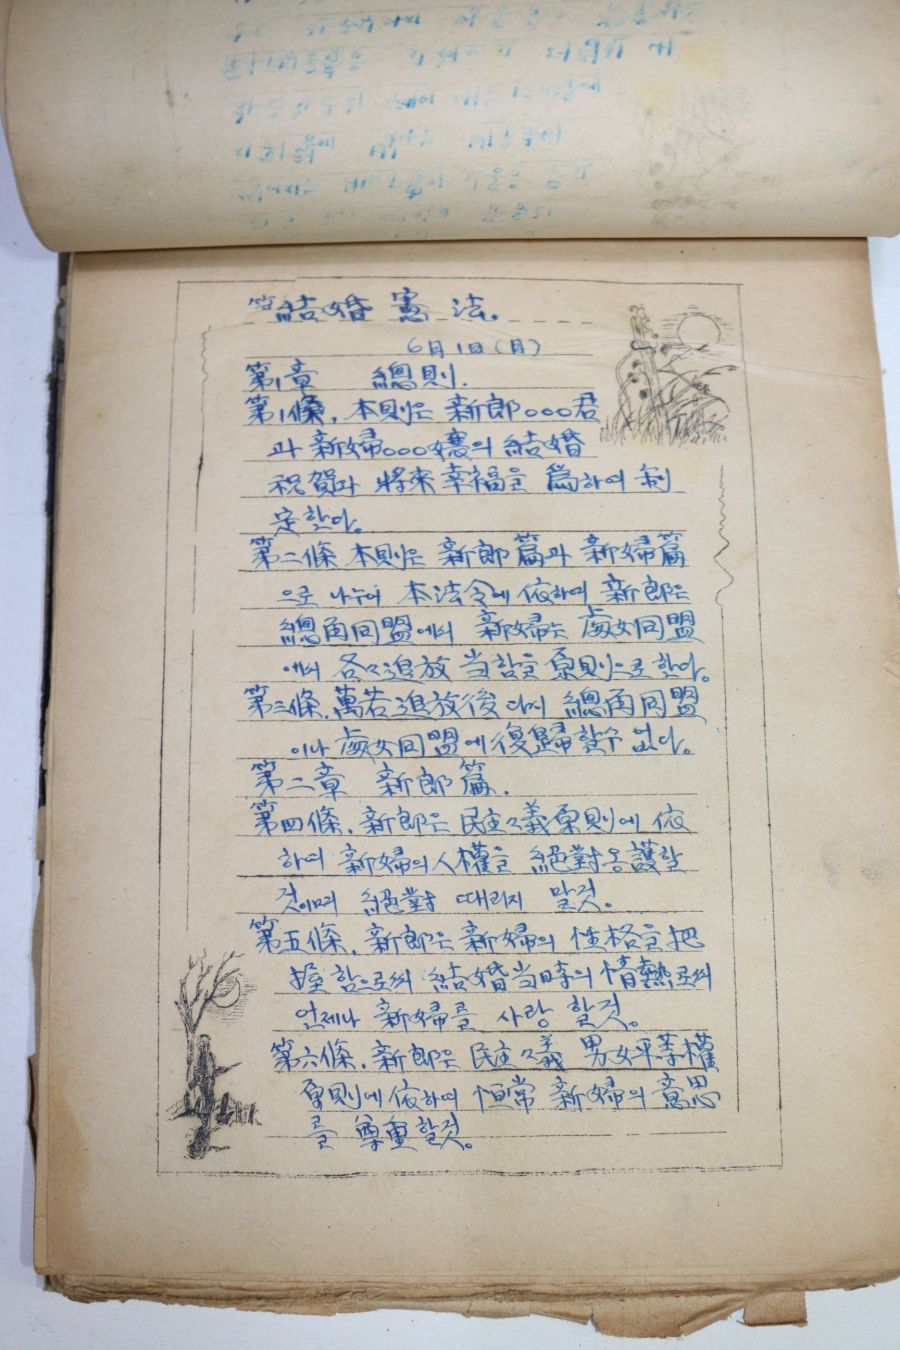 結婚 憲法.
6月1日(月)
第1章 總則.
第1條. 本則은 新郞○○○君
과 新婦○○○孃의 結婚
祝賀와 將來 幸福을 爲하여 制
定한다.
第二條 本則은 新郞篇과 新婦篇
으로 나누어 本法令에 依하여 新郞은
總角同盟에서 新婦는 處女同盟
에서 各々追放 当함을 原則으로 한다.
第三條. 萬若追放後 다시 總角同盟
이나 處女同盟에 復歸할수 없다.
第二章 新郞篇.
第四條. 新郞은 民主々義原則에 依
하여 新婦의 人權을 絕對옹護할
것이며 絕對 때리지 말것.
第五條. 新郞은 新婦의 性格을 把
握함으로써 結婚当時의 情熱로써
언제나 新婦를 사랑 할것.
第六條. 新郞은 民主々義 男女平等權
原則에 依하여 恒常 新婦의 意思
를 尊重할것.